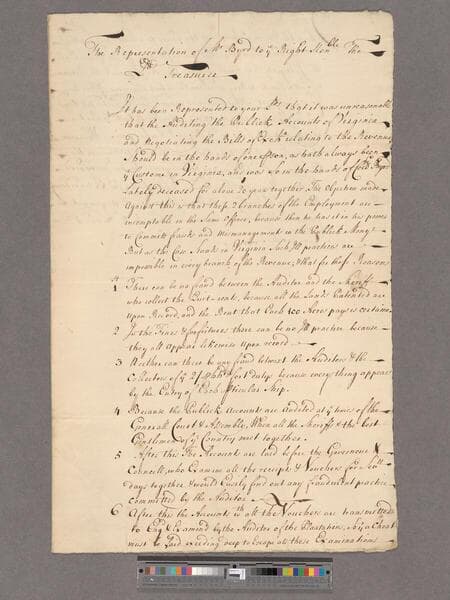 The Representation of Mr Byrd to ye Right Honble The
Lds Treasurie
It has been Represented to your Lps that it was unreasonable
that the Auditing the Publick Accounts of Virginia
and Negotiating the Bills of Exch. relating to the Revenue
Should be in the hands of one Person, as hath always been
ye Custome in Virginia, and was so in the hands of Coll. Byrd
Lately deceased for above 20 year together. The Objection made
Against this is that these 2 branches of the Employment are
incompatible in the Same Officer, because then he has it in his power
to Committ frauds and Mismanagement in the Publick Money
But as the Case Stands in Virginia Such Ill practices are
impossible in every branch of the Revenue, & that for these Reasons
1 There can be no fraud between the Auditor and the Sheriffs
who collect the Quit-rents, because all the Lands Patented are
upon Record, and the Rent that Each 100 Acres pays is custome
2 In the Fines & forfeitures there can be no Ill practice because
they all appear likewise upon record
3 Neither can there be any fraud betwixt the Auditor & the
Collectors of ye 2/ hhd & Fort dutys because every thing appears
by the Entry of Each perticular Ship.
4 Because the Publick Accounts are Audited at ye times of the
Generall Court & Assembly, When all the Sheriffs & the best
Gentlemen of ye Country met together.
5 After this The Account are laid before the Governour &
Councill, who Examine all the receipts & Vouchers for
days together & would Easily find out any fraudulent practice
committed by the Auditor.
6 After this the Accounts with all the Vouchers are transmitted
to Engld & Examind by the Auditor of the Plantations, so yt a Cheat
must be Laid exceeding deep to Escape all these Examinations